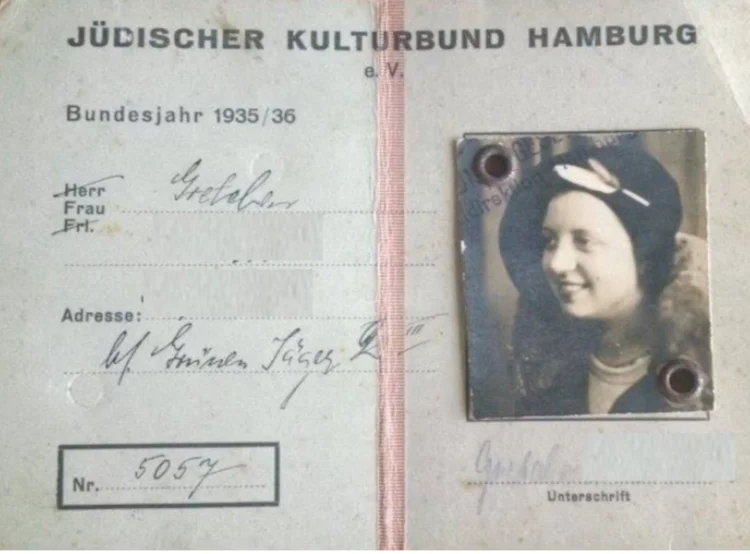 JÜDISCHER KULTURBUND HAMBURG
e. V.
Bundesjahr 1935/36
Herr
Frau Gretchen
Frl.
Adresse:
bf. Grünen Jäger
Nr. 5057
Unterschrift